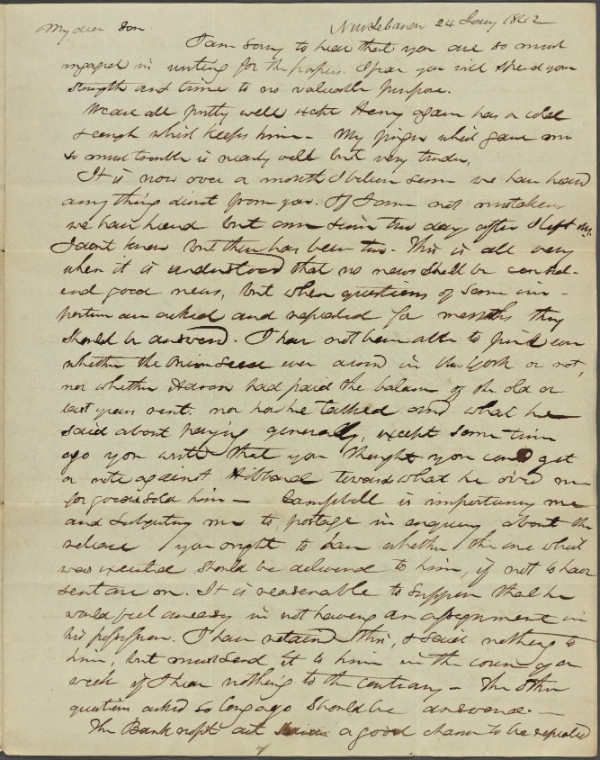 My dear Son. New Lebanon 24 Jany 1842
I am sorry to hear that you are so much
engaged in writing for the papers. I fear you will spend your
strength and time to no valuable purpose.
We are all pretty well except Henry again has a cold
& cough which keeps him - My finger which gave me
so much trouble is nearly well but very tender,
It is now over a month I believe since we have heard
any thing direct from you. If I am not mistaken
we have heard but once since two days after I left
I don't know but there has been two. This is all very
when it is understood that no news shall be consid-
ered good news, but when questions of some im-
portance are asked and repeated for months they
should be answered. I have not been able to find out
whether the seed ever arrived in New York or not,
nor whether had paid the balance of the old or
last years rent. nor how he talked and what he
said about paying generally, except some time
ago you wrote that you thought you could get
a note against Hibbard toward what he owed me
for goods sold him - Campbell is importuning me
and subjecting me to postage in enquiry about the
release you ought to learn whether the one which
was executed should be delivered to him, if not to have
sent me on. It is reasonable to suppose that he
would feel uneasy in not having an assignment in
his possession. I have retained this, & said nothing to
him, but must send it to him in the course of a
week if I hear nothing to the contrary - The other
questions asked so long ago should be answered. -
The Bank act a good chance to be repealed